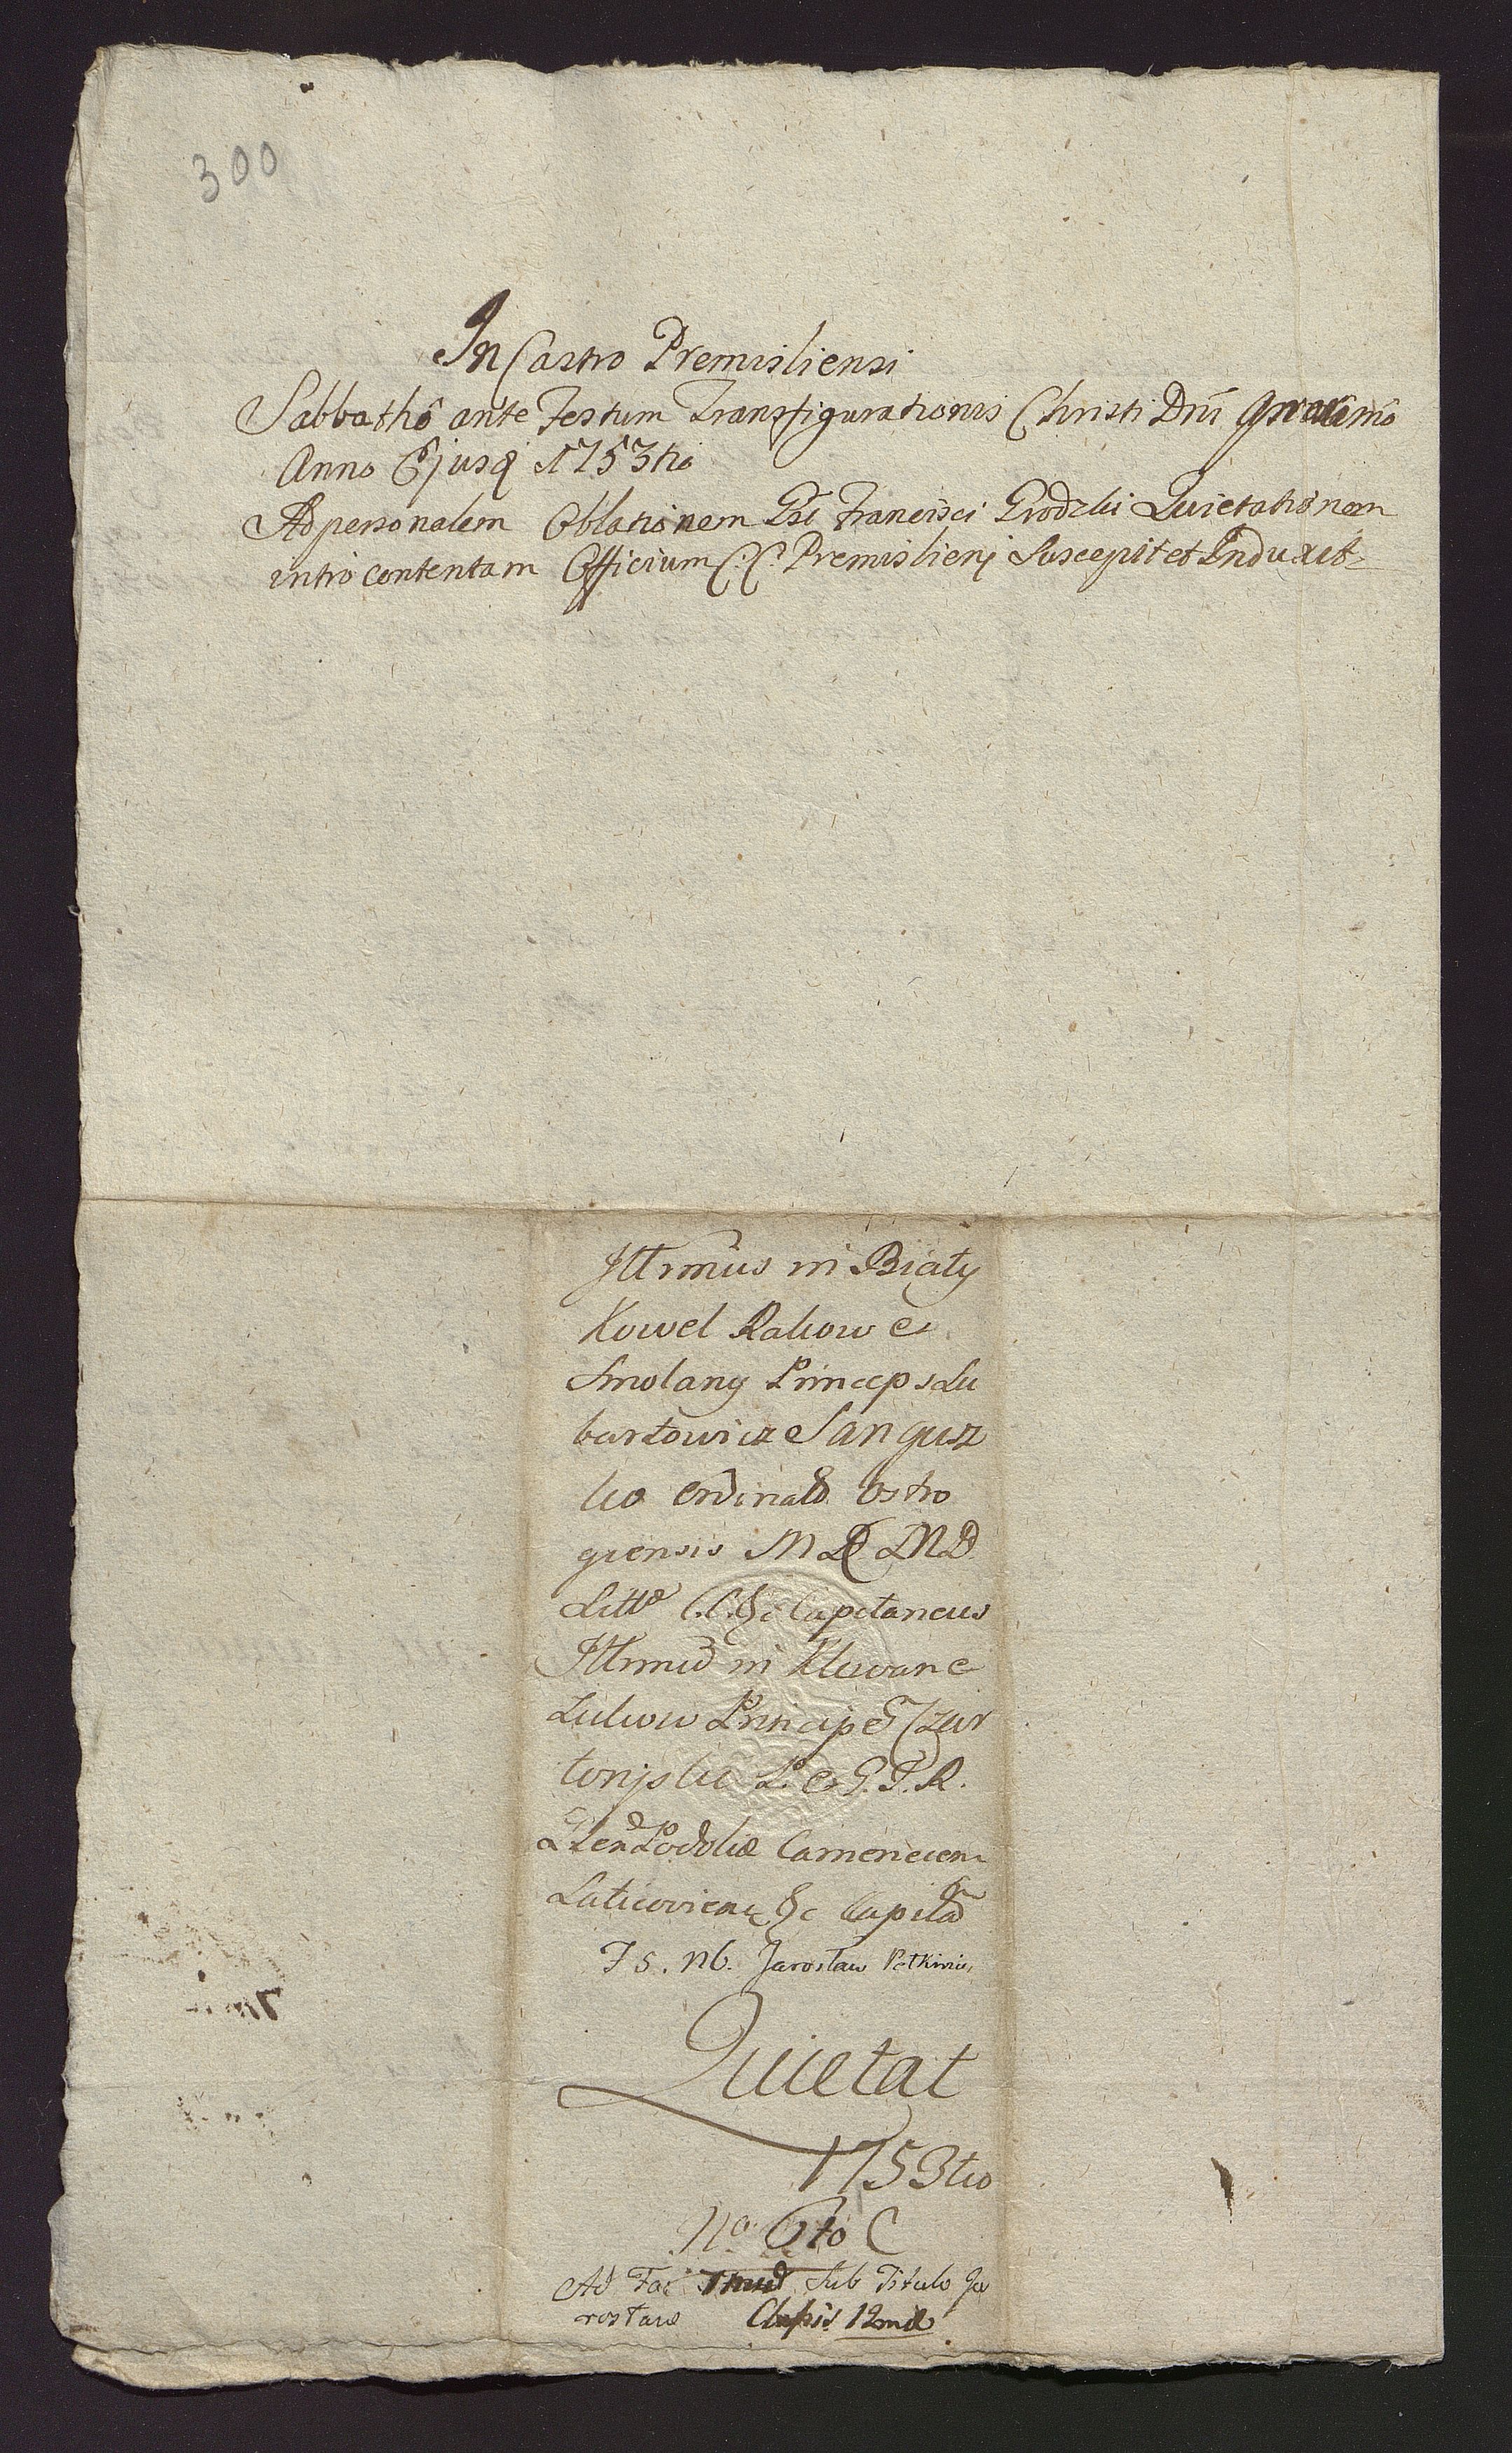 300
In Castro Premisliensi
Sabbathô ante Festum Transfigurationis Christi Dni proximo
Anno Ejusq 1753tio
Ad personalem Oblationem Gsi Francisci Grodzki Quietationem
intro contentam Officium C.C. Premislien Suscepit et Induxit
Illrmus in Biały
Kowel Rakow et
Smolany Princeps Lu
bartowicz Sangusz
ko Ordinat Ostro
giensis M D L
Litt C.C. &c Capitaneus
Illrmum in Klewan et
Zukow Principem Czar
toryski P. et G. T. R.
Gen Podoliæ Camenecen
Laticovien &c Capitan
Is. nb. Jarosław
Quietat
1753tio
No 6to C
Ad Fas Sub Titulo Ja
rosław 12ma